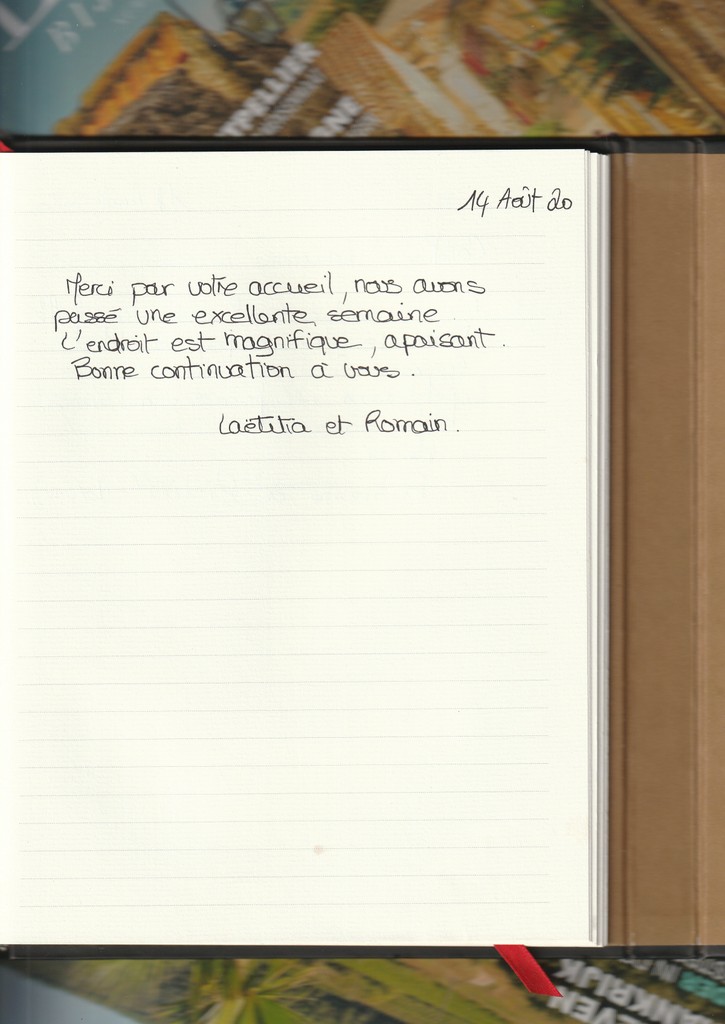 14 Août 20
Merci par votre accueil, nous avons
passé une excellente semaine.
L'endroit est magnifique, apaisant.
Bonne continuation à vous.
Laëtitia et Romain.